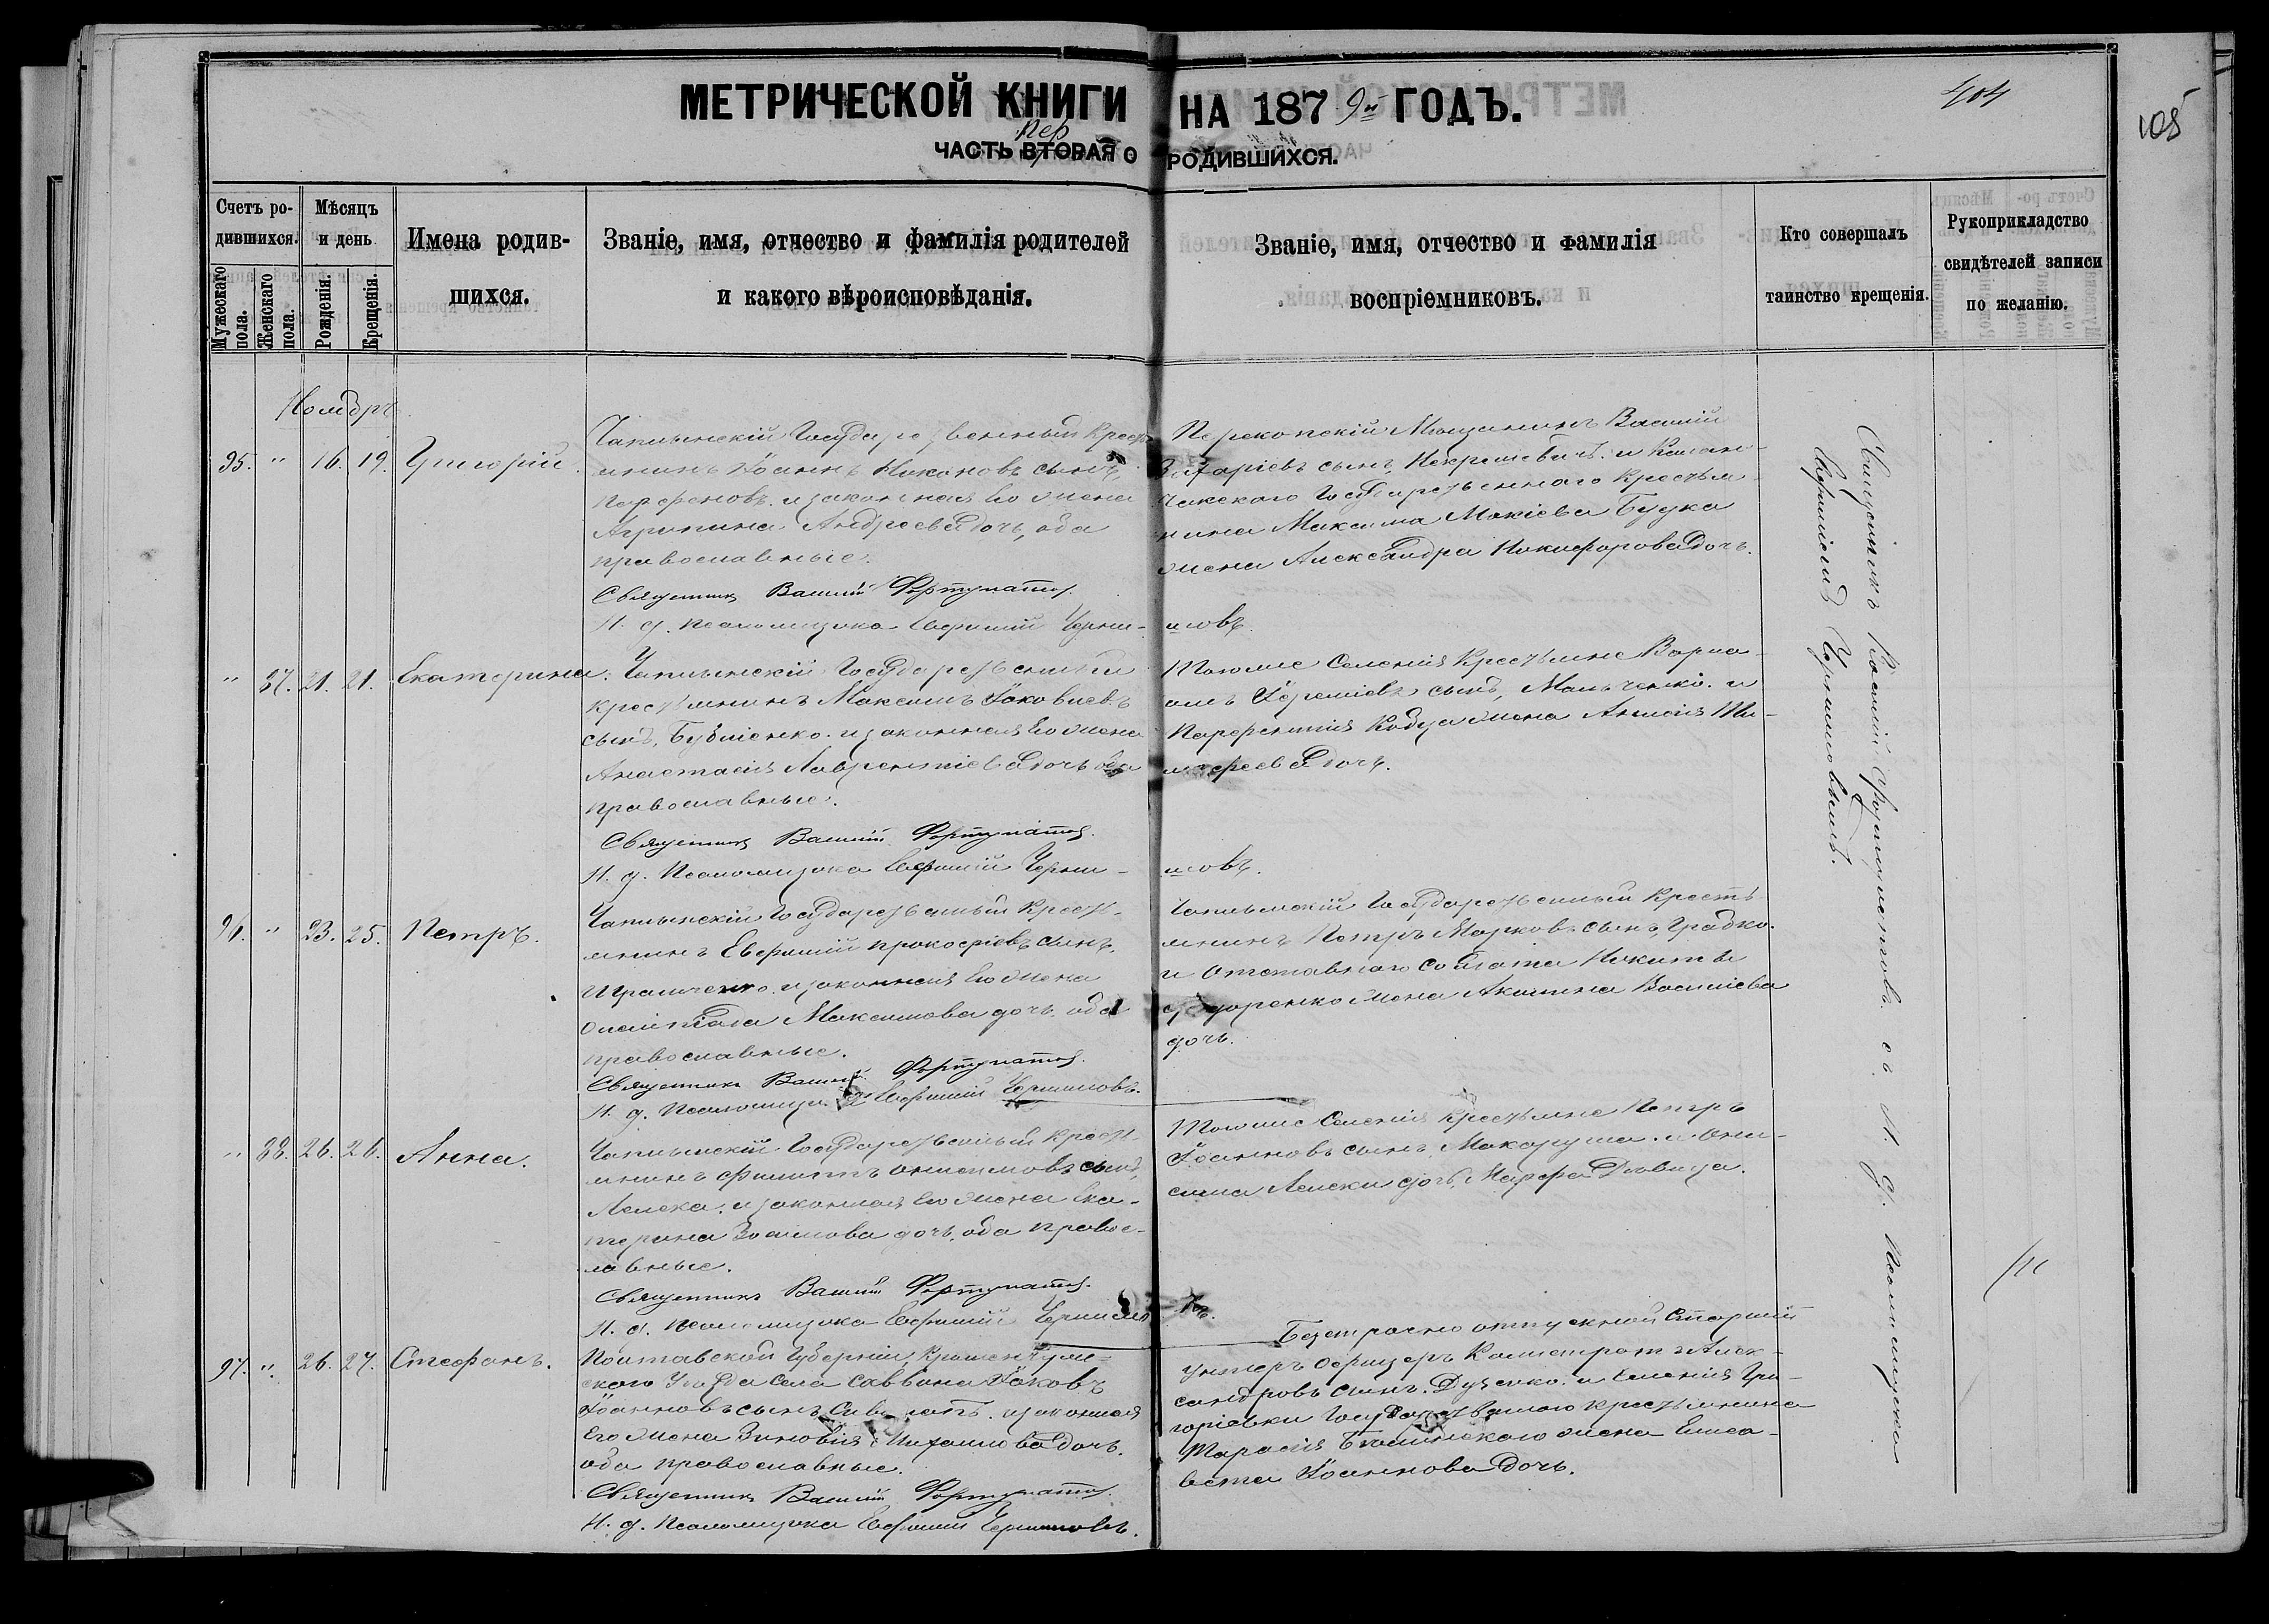 МЕТРИЧЕСКОЙ КНИГИ НА 1879й ГОДЪ.
404
105
пер
ЧАСТЬ ВТОРАЯ О РОДИВШИХСЯ.
Счетъ родившихся.
Мужескаго пола.
Женскаго пола.
Мѣсяцъ и день
Рожденія.
Крещенія.
Имена родившихся.
Званіе, имя, отчество и фамилія родителей
и какого вѣроисповѣданія.
Званіе, имя, отчество и фамилія
воспріемниковъ.
Кто совершалъ
таинство крещенія.
Рукоприкладство
свидѣтелей записи
по желанію.
Ноябрь
95. " 16. 19. Григорій.
Чаплынскій Государственный Кресть
янинъ Іоаннъ Никоновъ сынъ,
Парфеновъ. и законная его жена
Агрипина Андреева дочь, оба
православные.
Священникъ Василій Фортунатовъ.
И. д. Псаломщика Евфимій Чернишовъ.
Перекопскій Мѣщанинъ Василій
Захаріевъ сынъ, Некрашевичъ. и Калан
чакского Государственнаго Крестья
нина Максима Мокіева Будка
жена Александра Никифорова дочь.
" 87. 21. 21. Екатерина.
Чаплынскій Государственный
крестьянинъ Максимъ Іаковлевъ
сынъ, и законная его жена
Анастасія Лаврентіева дочь оба
православные.
Священникъ Василій Фортунатовъ.
И. д. Псаломщика Евфимій Чернишовъ.
Тоже Селенія Крестьяне
Іереміевъ сынъ, и
Парфентія жена
дочь.
96. " 23. 25. Петръ.
Чаплынскій Государственный Кресть-
янинъ Евфимій Прокофіевъ сынъ,
и законная его жена
Олимпіада Максимова дочь, оба
православные.
Священникъ Василій Фортунатовъ.
И. д. Псаломщика Евфимій Чернишовъ.
Чаплынскій Государственный Кресть
янинъ Петръ Марковъ сынъ,
и Отставнаго солдата Никиты
жена Акилина Васильева
дочь.
" 88. 26. 26. Анна.
Чаплынскій Государственный Кресть-
янинъ Филиппъ Онисимовъ сынъ,
Лелека. и законная его жена Ека-
терина дочь, оба правос-
лавные.
Священникъ Василій Фортунатовъ.
И. д. Псаломщика Евфимій Чернишовъ.
Тоже Селенія Крестьяне Петръ
Іоанновъ сынъ, Макаруша. и Они-
сима Лелеки дочь, Марфа Дѣвица.
97. " 26. 27. Стефанъ.
Полтавской Губерніи, Кременчуг-
скаго Уѣзда Села Іаковъ
Іоанновъ сынъ, и законная
его жена Зиновія Михаилова дочь.
оба православные.
Священникъ Василій Фортунатовъ.
И. д. Псаломщика Евфимій Чернишовъ.
Безсрочно отпускной Старшій
Унтеръ Офицеръ Калистратъ Алек-
сандровъ сынъ, Дуденко. и Селенія Гри-
горіевки Государственнаго крестьянина
Тарасія жена Елиса-
вета Іоаннова дочь.
Священникъ Василій Фортунатовъ съ И. д. Псаломщика
Евфиміемъ Чернишовымъ.